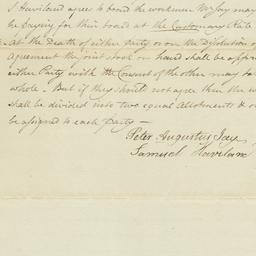 S Haviland agrees to board the workmen Mr Jay may
he paying for their board at the Customary Rate
At the Death of either Party or on the Dissolution of
Agreement the Joint Stock on hand shall be appra
either Party with the Consent of the other may tak
whole. But if they should not agree then the w
shall be divided into two equal Allotments & o
be assigned to each Party —
Peter Augustus Jay
Samuel Haviland